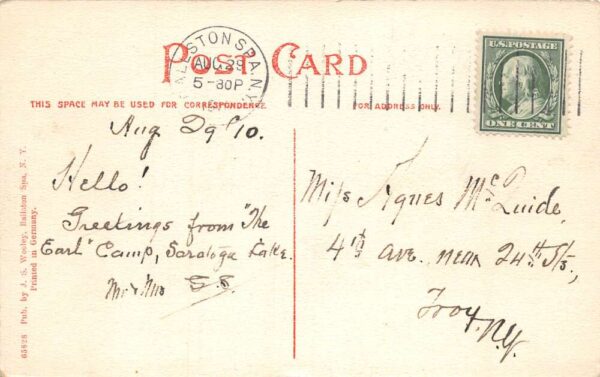 POST CARD
BALLSTON SPA, N.Y.
AUG 29
5-30P
U.S. POSTAGE
ONE CENT
THIS SPACE MAY BE USED FOR CORRESPONDENCE.
FOR ADDRESS ONLY.
Aug 29 '10.
Hello!
Greetings from "The
Earl" Camp, Saratoga Lake.
Mr & Mrs
Miss Agnes McQuide,
4th ave. near 24th St.,
Troy,
N.Y.
65828 Pub. by J. S. Wooley, Ballston Spa, N. Y.
Printed in Germany.